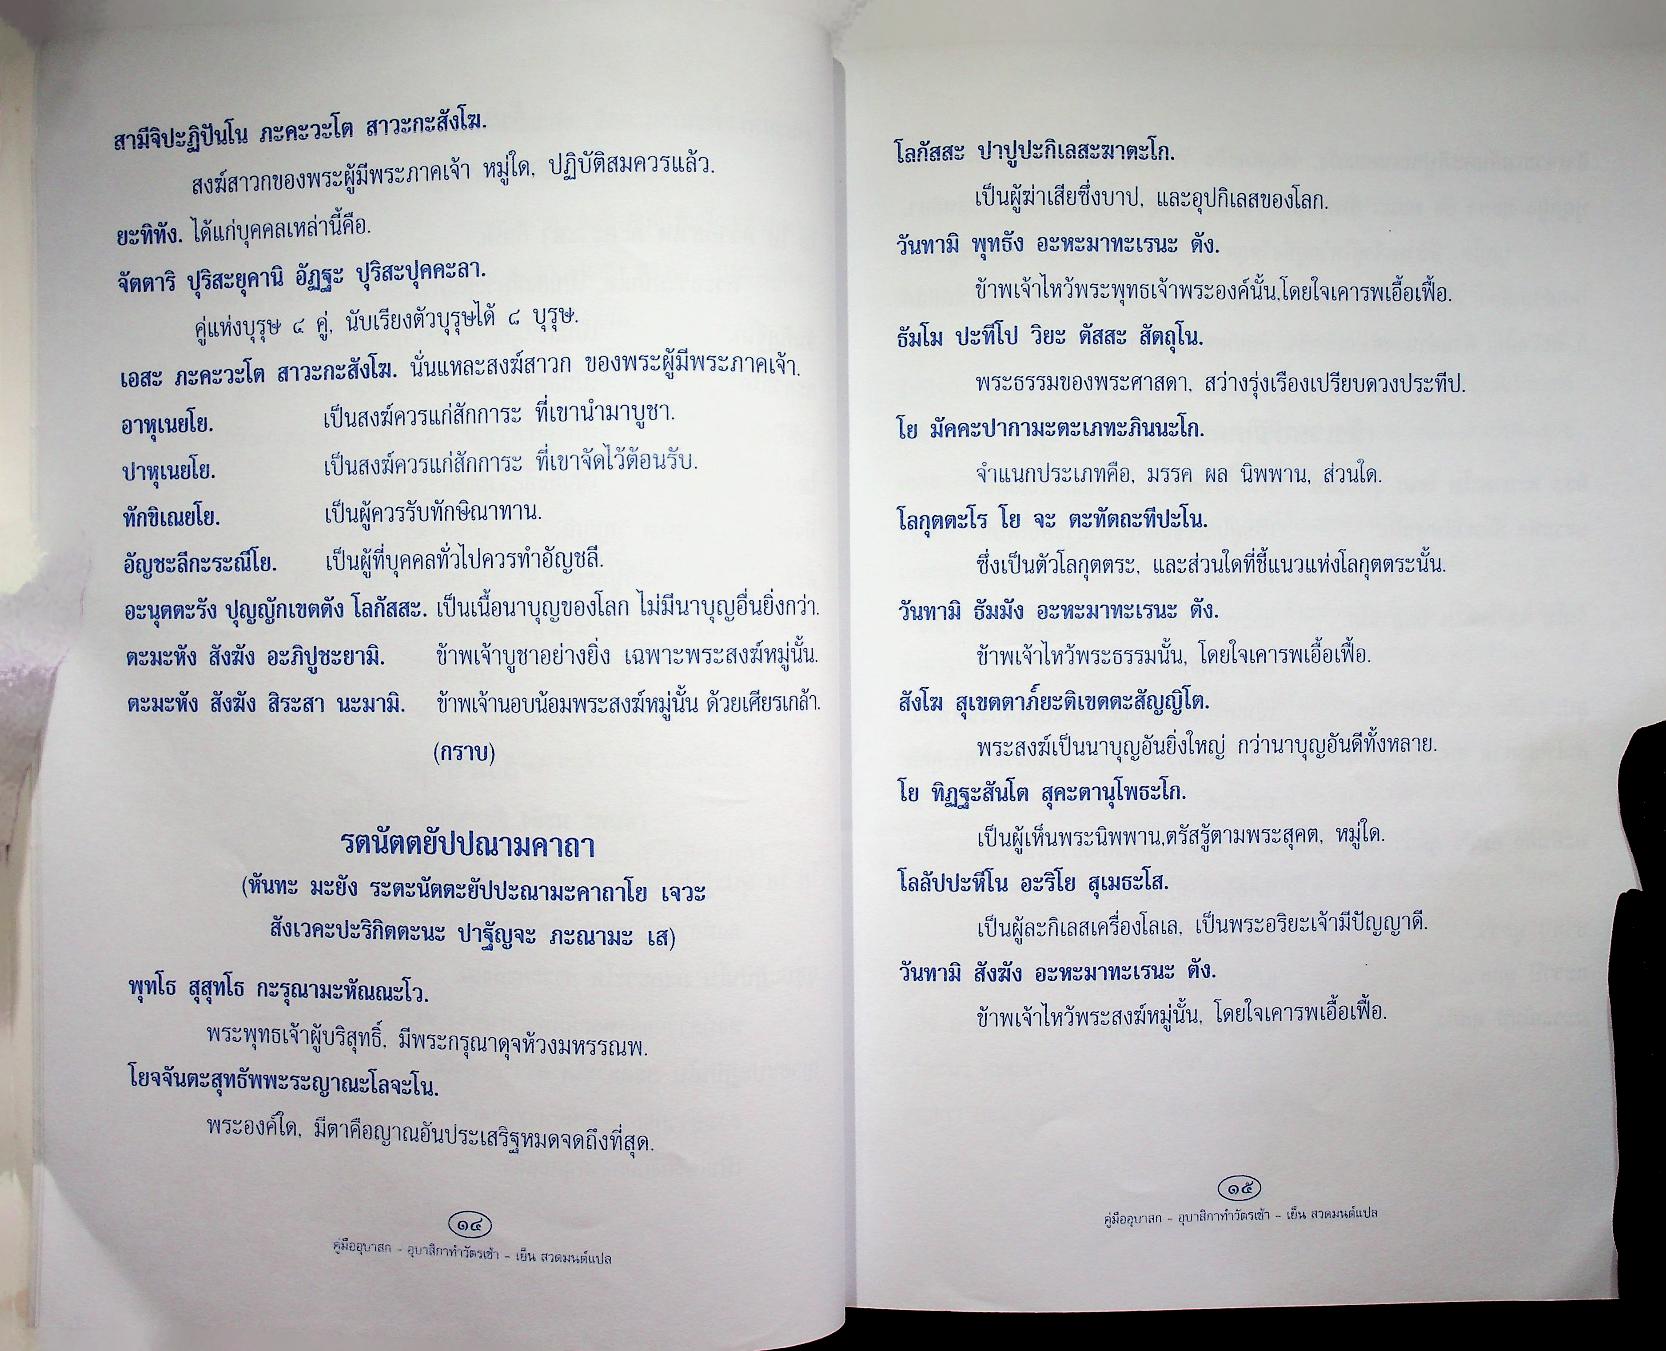 สามีจิปะฏิปันโน ภะคะวะโต สาวะกะสังโฆ.
สงฆ์สาวกของพระผู้มีพระภาคเจ้า หมู่ใด, ปฏิบัติสมควรแล้ว.
ยะทิทัง. ได้แก่บุคคลเหล่านี้คือ.
จัตตาริ ปุริสะยุคานิ อัฏฐะ ปุริสะปุคคะลา.
คู่แห่งบุรุษ ๔ คู่, นับเรียงตัวบุรุษได้ ๘ บุรุษ.
เอสะ ภะคะวะโต สาวะกะสังโฆ. นั่นแหละสงฆ์สาวก ของพระผู้มีพระภาคเจ้า.
อาหุเนยโย. เป็นสงฆ์ควรแก่สักการะ ที่เขานำมาบูชา.
ปาหุเนยโย. เป็นสงฆ์ควรแก่สักการะ ที่เขาจัดไว้ต้อนรับ.
ทักขิเณยโย. เป็นผู้ควรรับทักษิณาทาน.
อัญชะลีกะระณีโย. เป็นผู้ที่บุคคลทั่วไปควรทำอัญชลี.
อะนุตตะรัง ปุญญักเขตตัง โลกัสสะ. เป็นเนื้อนาบุญของโลก ไม่มีนาบุญอื่นยิ่งกว่า.
ตะมะหัง สังฆัง อะภิปูชะยามิ. ข้าพเจ้าบูชาอย่างยิ่ง เฉพาะพระสงฆ์หมู่นั้น.
ตะมะหัง สังฆัง สิระสา นะมามิ. ข้าพเจ้านอบน้อมพระสงฆ์หมู่นั้น ด้วยเศียรเกล้า.
(กราบ)
รตนัตตยัปปณามคาถา
(หันทะ มะยัง ระตะนัตตะยัปปะณามะคาถาโย เจวะ
สังเวคะปะริกิตตะนะ ปาฐัญจะ ภะณามะ เส)
พุทโธ สุสุทโธ กะรุณามะหัณณะโว.
พระพุทธเจ้าผู้บริสุทธิ์, มีพระกรุณาดุจห้วงมหรรณพ.
โยจจันตะสุทธัพพะระญาณะโลจะโน.
พระองค์ใด, มีตาคือญาณอันประเสริฐหมดจดถึงที่สุด.
๑๔
คู่มืออุบาสก - อุบาสิกาทำวัตรเช้า - เย็น สวดมนต์แปล
โลกัสสะ ปาปูปะกิเลสะฆาตะโก.
เป็นผู้ฆ่าเสียซึ่งบาป, และอุปกิเลสของโลก.
วันทามิ พุทธัง อะหะมาทะเรนะ ตัง.
ข้าพเจ้าไหว้พระพุทธเจ้าพระองค์นั้น,โดยใจเคารพเอื้อเฟื้อ.
ธัมโม ปะทีโป วิยะ ตัสสะ สัตถุโน.
พระธรรมของพระศาสดา, สว่างรุ่งเรืองเปรียบดวงประทีป.
โย มัคคะปากามะตะเภทะภินนะโก.
จำแนกประเภทคือ, มรรค ผล นิพพาน, ส่วนใด.
โลกุตตะโร โย จะ ตะทัตถะทีปะโน.
ซึ่งเป็นตัวโลกุตตระ, และส่วนใดที่ชี้แนวแห่งโลกุตตระนั้น.
วันทามิ ธัมมัง อะหะมาทะเรนะ ตัง.
ข้าพเจ้าไหว้พระธรรมนั้น, โดยใจเคารพเอื้อเฟื้อ.
สังโฆ สุเขตตาภ๎ยะติเขตตะสัญญิโต.
พระสงฆ์เป็นนาบุญอันยิ่งใหญ่ กว่านาบุญอันดีทั้งหลาย.
โย ทิฏฐะสันโต สุคะตานุโพธะโก.
เป็นผู้เห็นพระนิพพาน,ตรัสรู้ตามพระสุคต, หมู่ใด.
โลลัปปะหีโน อะริโย สุเมธะโส.
เป็นผู้ละกิเลสเครื่องโลเล, เป็นพระอริยะเจ้ามีปัญญาดี.
วันทามิ สังฆัง อะหะมาทะเรนะ ตัง.
ข้าพเจ้าไหว้พระสงฆ์หมู่นั้น, โดยใจเคารพเอื้อเฟื้อ.
๑๕
คู่มืออุบาสก - อุบาสิกาทำวัตรเช้า - เย็น สวดมนต์แปล